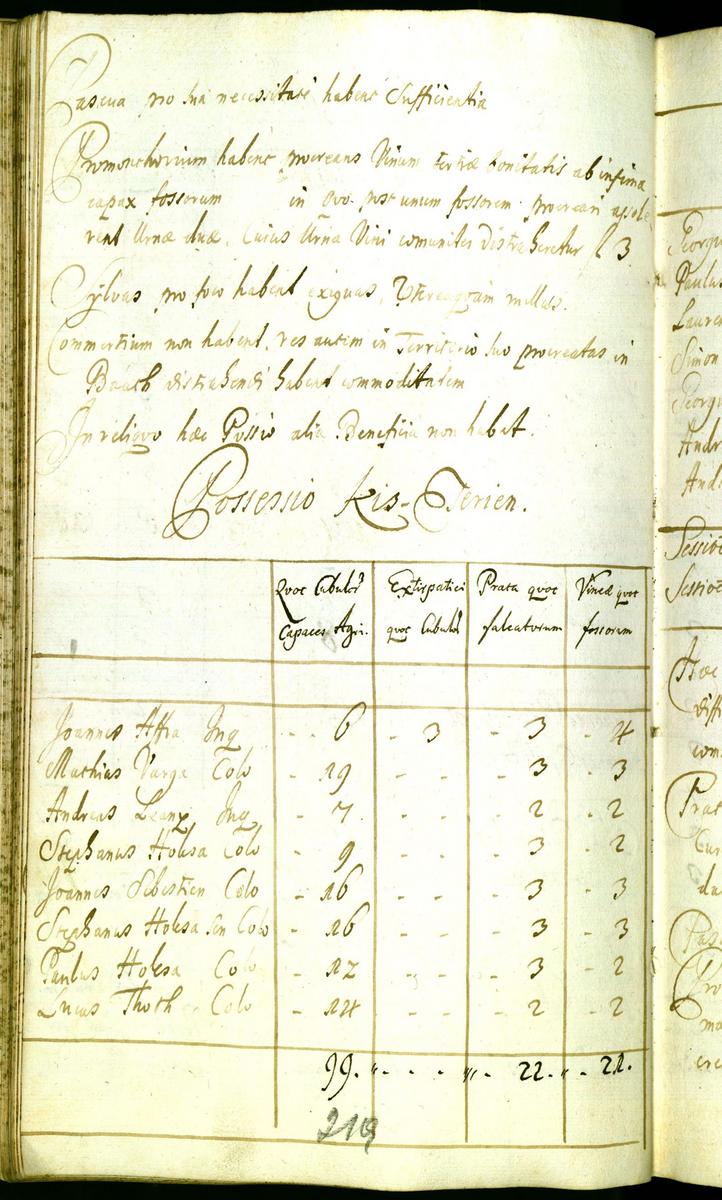 Pascua pro sua necessitate habent Sufficientia
Promonthorium habent procreans Vinum tertiæ bonitatis ab infima
capax fossorum in quo post unum fossorem procreari assole
rent Urnæ duæ. Cuius Urna Vini comuniter distraheretur f 3.
Sylvas pro foco habent exiguas, Utereaquam nullas.
Commertium non habent, res autem in Territorio suo procreatas in
Baach distrahendi habent commoditatem
In reliquo hæc Possio alia Beneficia non habet.
Possessio Kis-Terien.
Quot Cubulor Capaces Agri. Extirpatici quot Cubulor Prata quot falcatorum Vineæ quot fossorum
Joannes Affra Inq - - 6 - 3 - 3 - 4
Mathias Varga Colo - 19 - - - 3 - 3
Andreas Inq - 7 - - - 2 - 2
Stephanus Holesa Colo - 9 - - - 3 - 2
Joannes Sebestien Colo - 16 - - - 3 - 3
Stephanus Holesa Sen Colo - 16 - - - 3 - 3
Paulus Holesa Colo - 12 - - - 3 - 2
Lucas Thoth Colo - 14 - - - 2 - 2
99. " - - - " - 22. " - 21.
219
Georgi
Paulus
Laure
Simon
Georgi
Andr
Andr
Sessio
Sessio
Hoc
diff
com
Prat
Cur
du
Pas
Pro
ma
cre